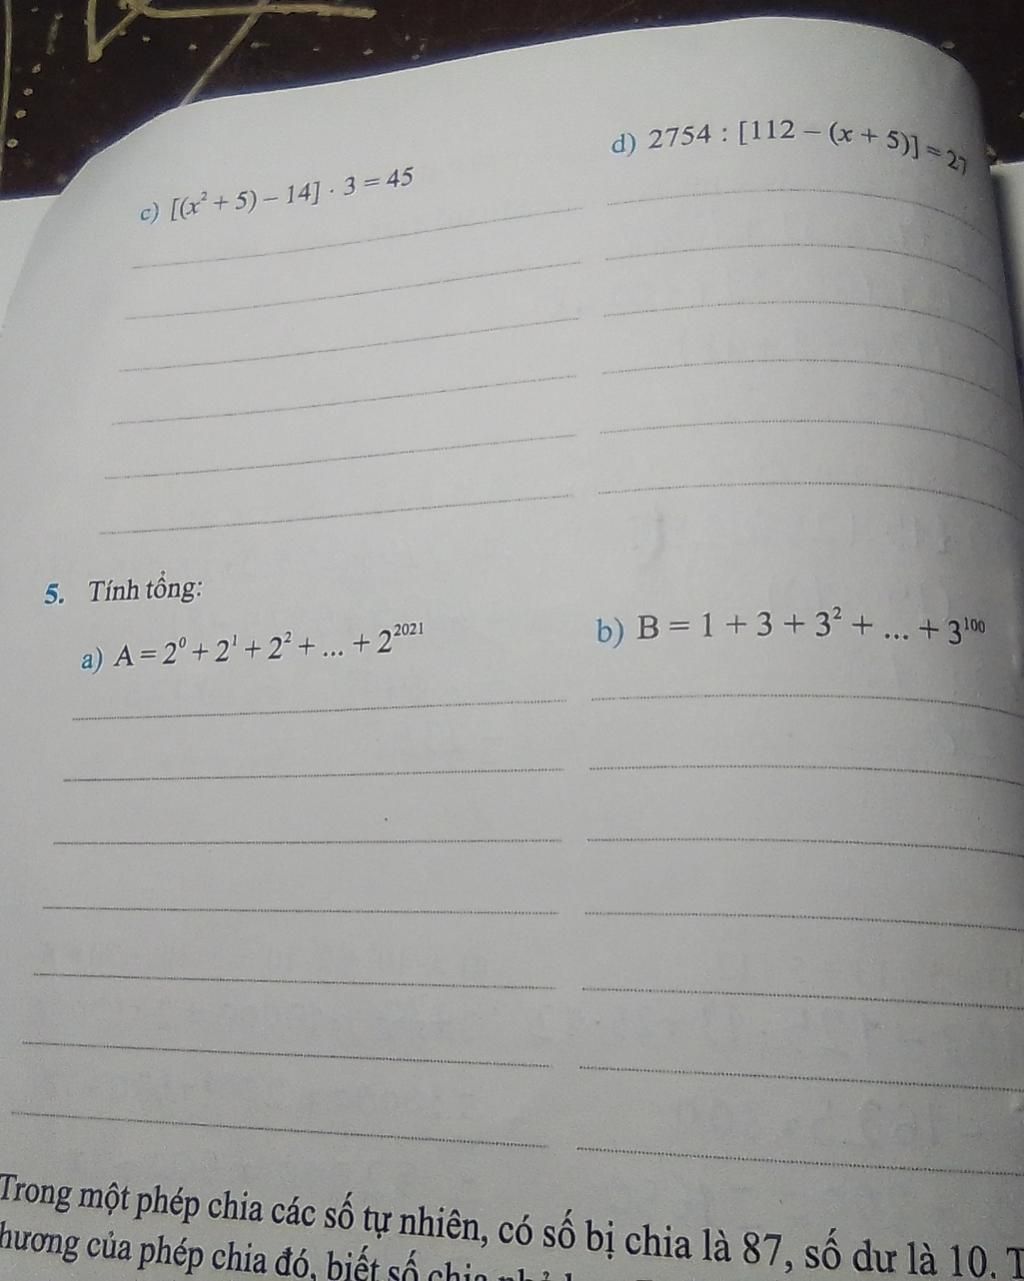 c) [(x² + 5) – 14] · 3 = 45
d) 2754 : [112 – (x + 5)] = 27
5. Tính tổng:
a) A = 2⁰ + 2¹ + 2² + ... + 2²⁰²¹
b) B = 1 + 3 + 3² + ... + 3¹⁰⁰
Trong một phép chia các số tự nhiên, có số bị chia là 87, số dư là 10. T
hương của phép chia đó, biết số